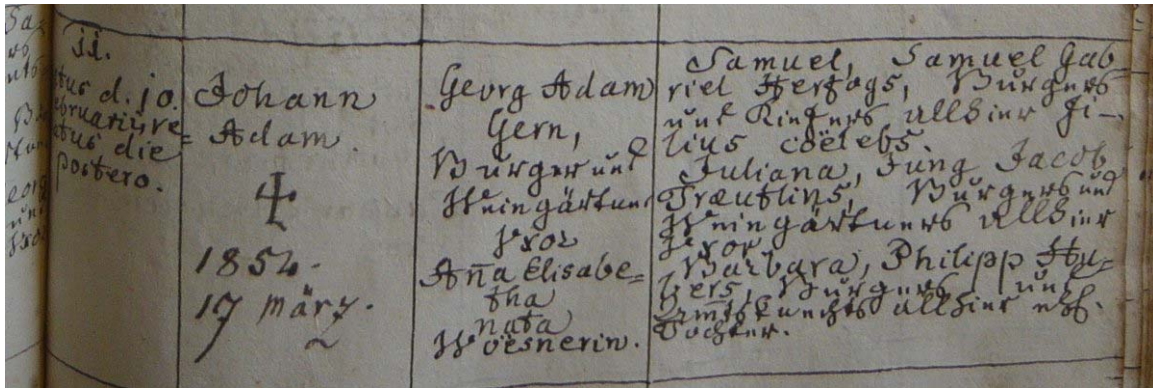 ii.
tus d. jo.
ebruarii, re=
atus die
postero.
Johann
Adam.
1852.
17 März.
Georg Adam
Gern,
Burger und
Weingärtner
Uxor
Aña Elisabe=
tha
nata
Woesnerin.
Samuel, Samuel Gab=
riel Hertzogs, Burgers
und Kiefers allhier Fi=
lius coëlebs.
Juliana, Jung Jacob
Træutlins, Burgers und
Weingärtners allhier
Uxor.
Barbara, Philipp Hu=
bers, Burgers und
Amtsknechts allhier ehl.
Tochter.